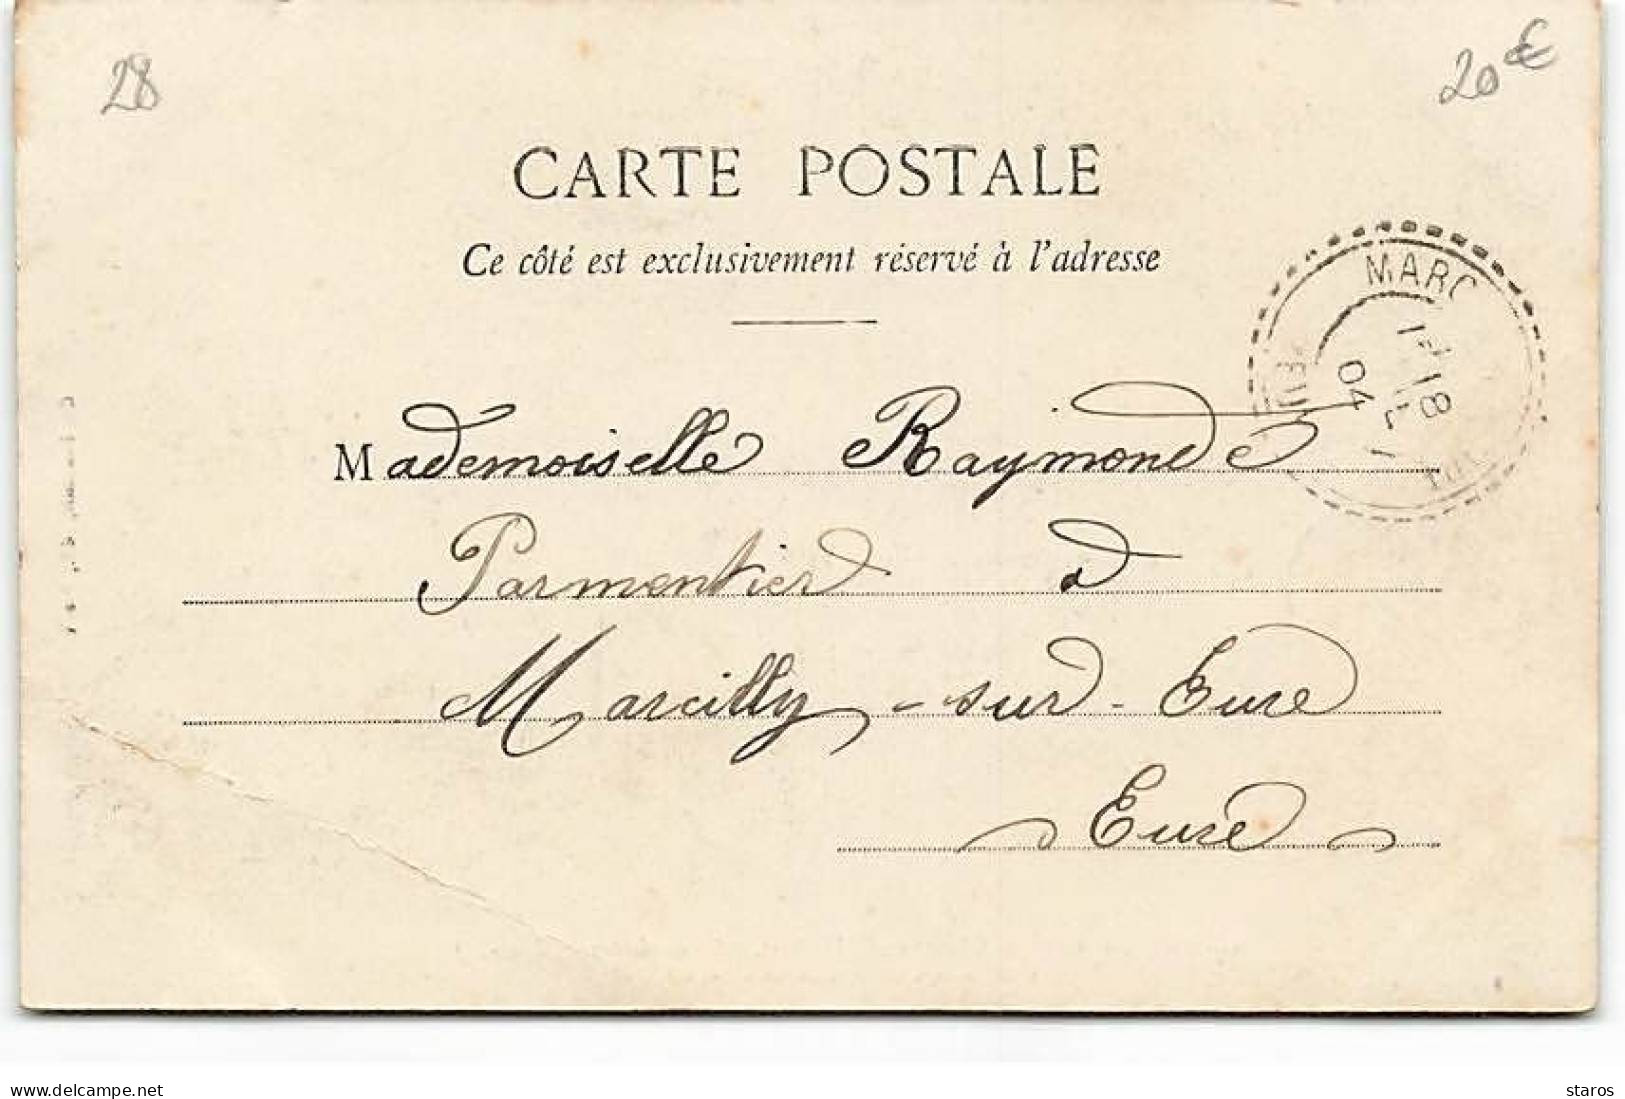 28
20€
CARTE POSTALE
Ce côté est exclusivement réservé à l'adresse
MARC
18
04
Mademoiselle Raymonde
Parmentier à
Marcilly-sur-Eure
Eure
www.delcampe.net
staros